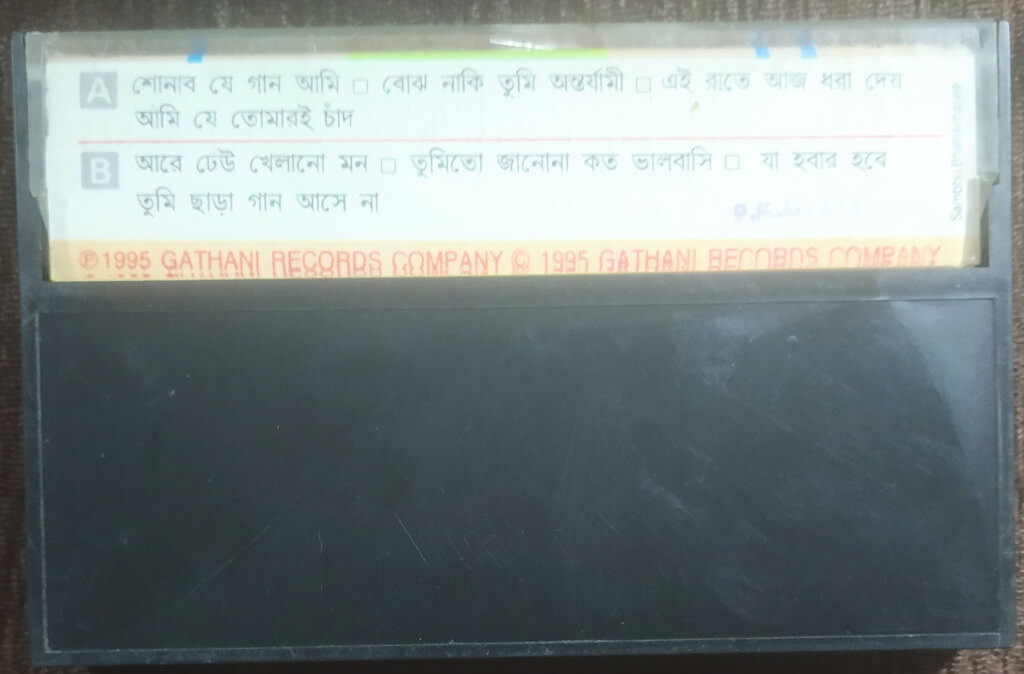 A শোনাব যে গান আমি □ বোঝ নাকি তুমি অন্তর্যামী □ এই রাতে আজ ধরা দেয়
আমি যে তোমারই চাঁদ
B আরে ঢেউ খেলানো মন □ তুমিতো জানোনা কত ভালবাসি □ যা হবার হবে
তুমি ছাড়া গান আসে না
℗ 1995 GATHANI RECORDS COMPANY © 1995 GATHANI RECORDS COMPANY